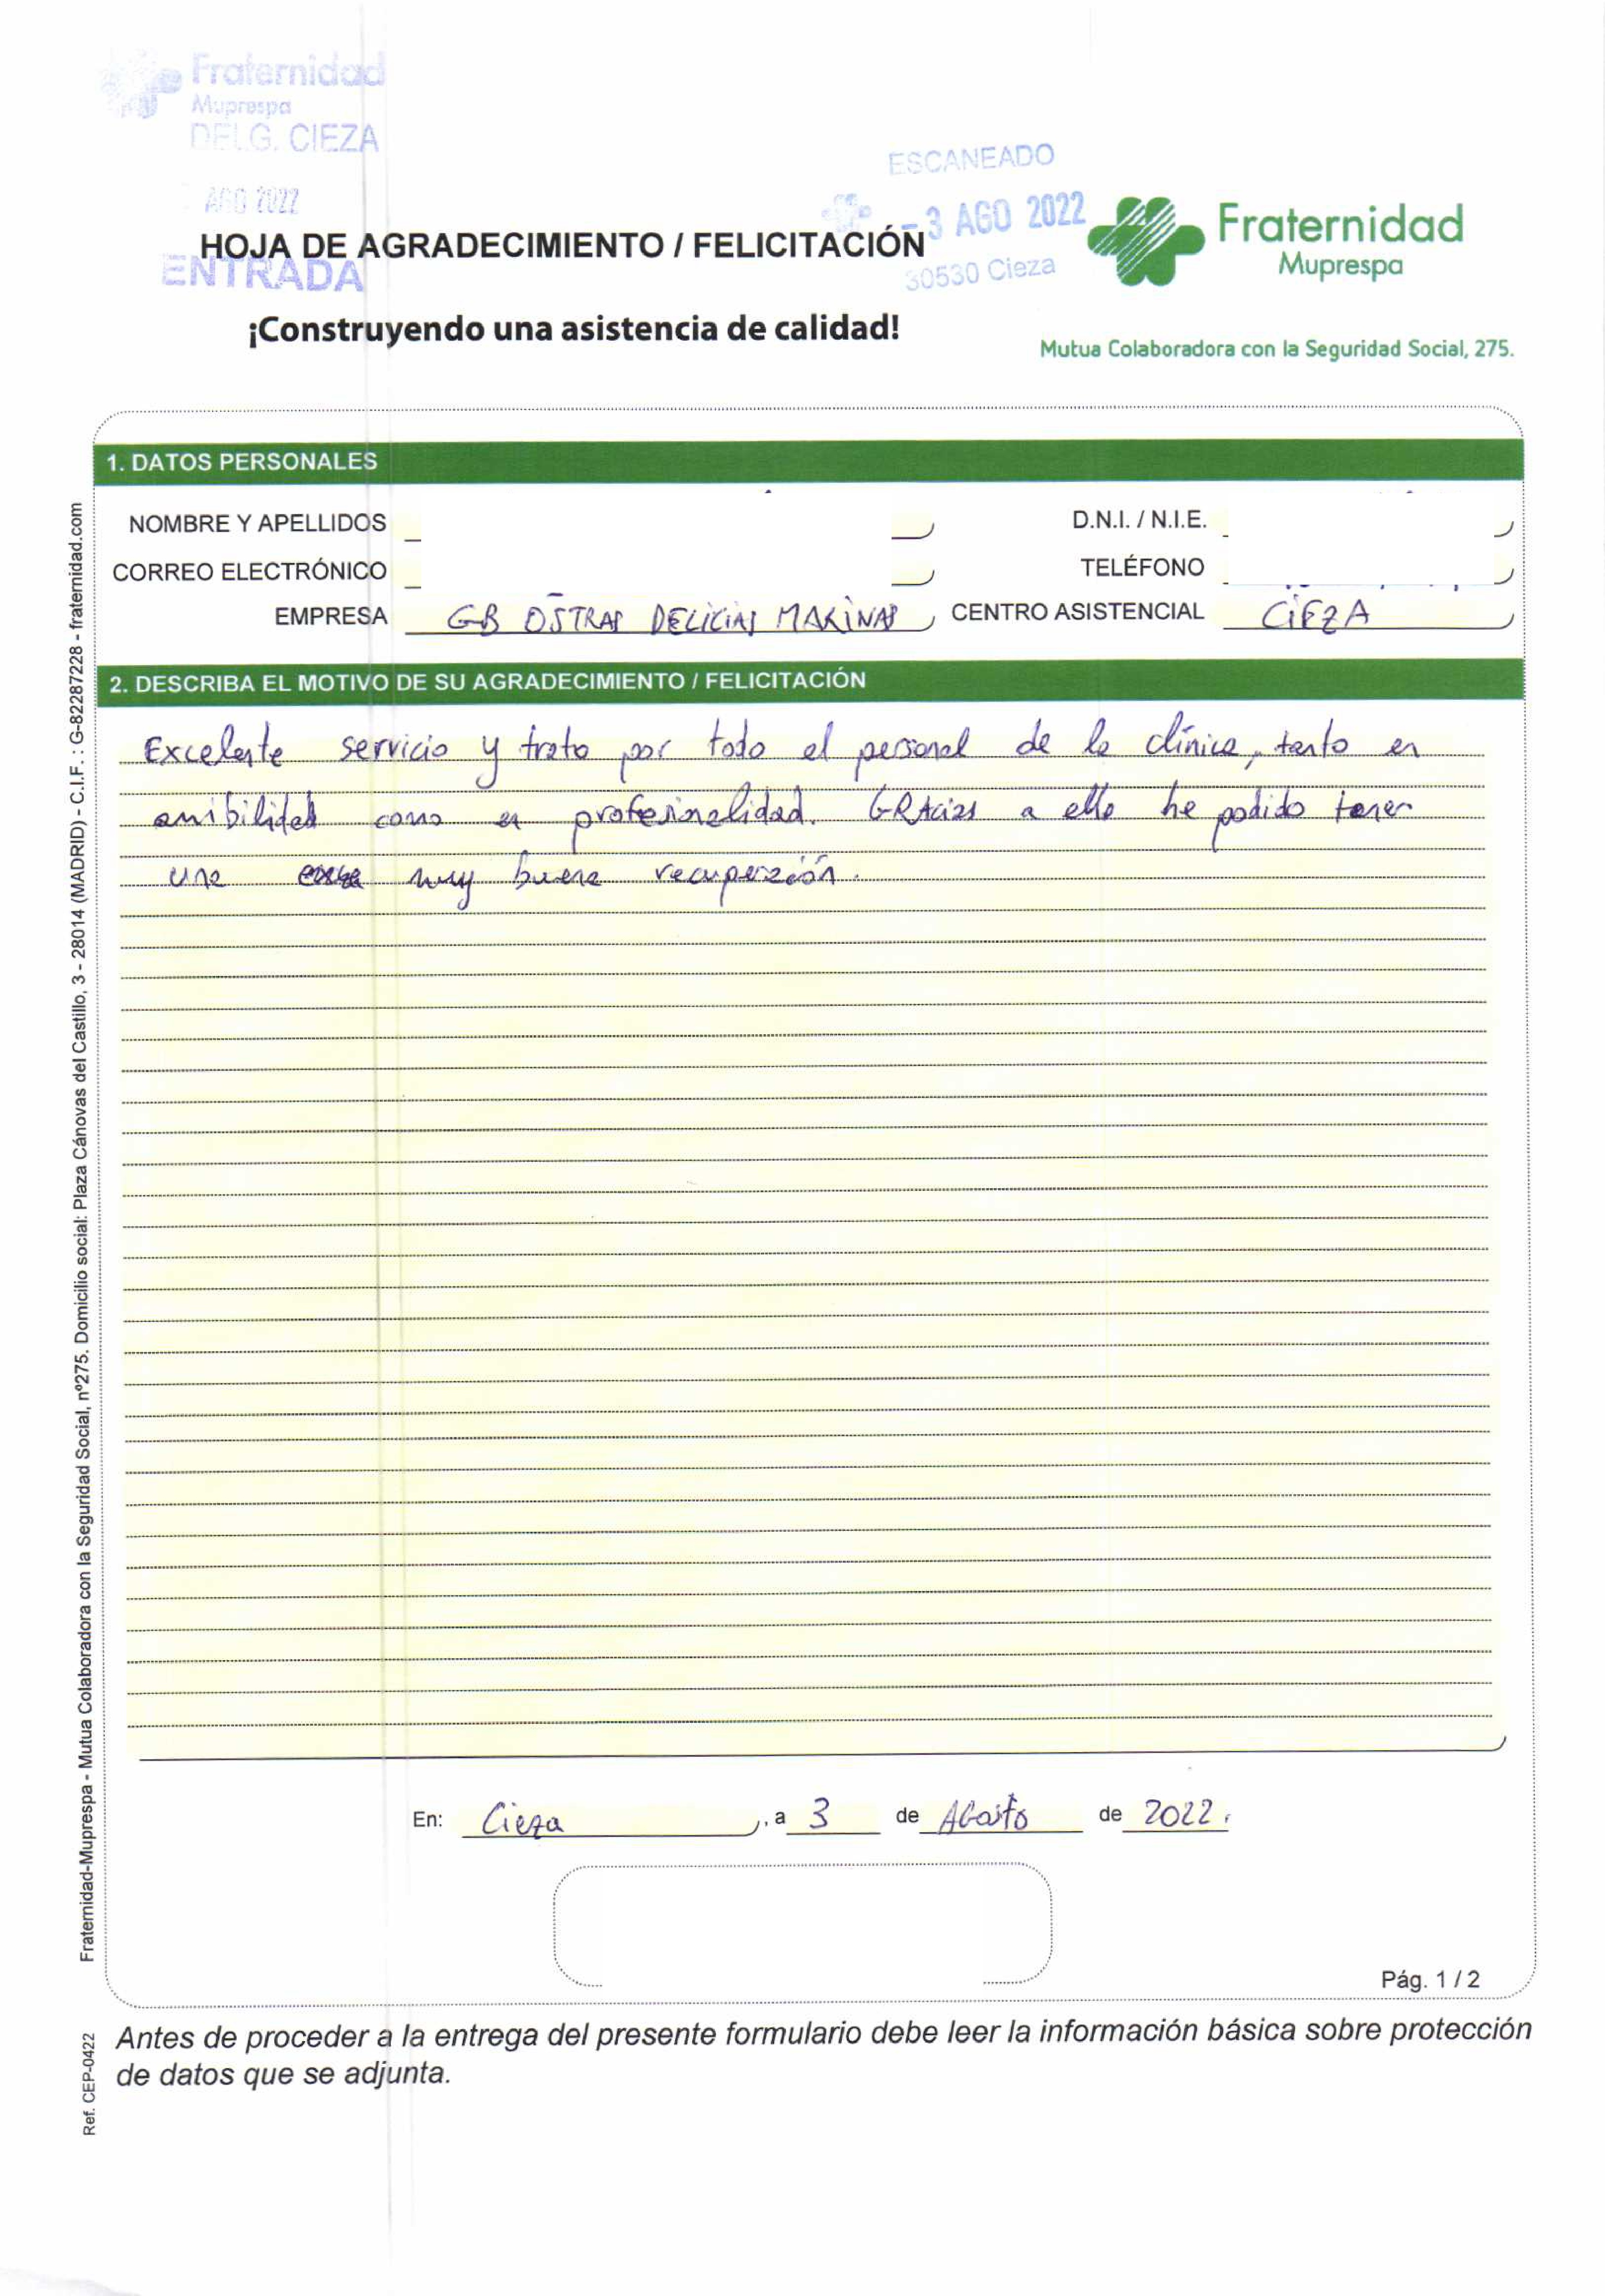 Fraternidad
Muprespa
DELG. CIEZA
AGO 2022
ENTRADA
ESCANEADO
- 3 AGO 2022
30530 Cieza
HOJA DE AGRADECIMIENTO / FELICITACIÓN
¡Construyendo una asistencia de calidad!
Fraternidad
Muprespa
Mutua Colaboradora con la Seguridad Social, 275.
1. DATOS PERSONALES
NOMBRE Y APELLIDOS D.N.I. / N.I.E.
CORREO ELECTRÓNICO TELÉFONO
EMPRESA GB OSTRAS DELICIAS MARINAS CENTRO ASISTENCIAL CIEZA
2. DESCRIBA EL MOTIVO DE SU AGRADECIMIENTO / FELICITACIÓN
Excelente servicio y trato por todo el personal de la clínica, tanto en
amibilidad como en profesionalidad. GRAcias a ello he podido tener
una muy buena recuperación.
En: Cieza, a 3 de AGosto de 2022.
Pág. 1 / 2
Antes de proceder a la entrega del presente formulario debe leer la información básica sobre protección
de datos que se adjunta.
Fraternidad-Muprespa - Mutua Colaboradora con la Seguridad Social, nº275. Domicilio social: Plaza Cánovas del Castillo, 3 - 28014 (MADRID) - C.I.F. : G-82287228 - fraternidad.com
Ref. CEP-0422